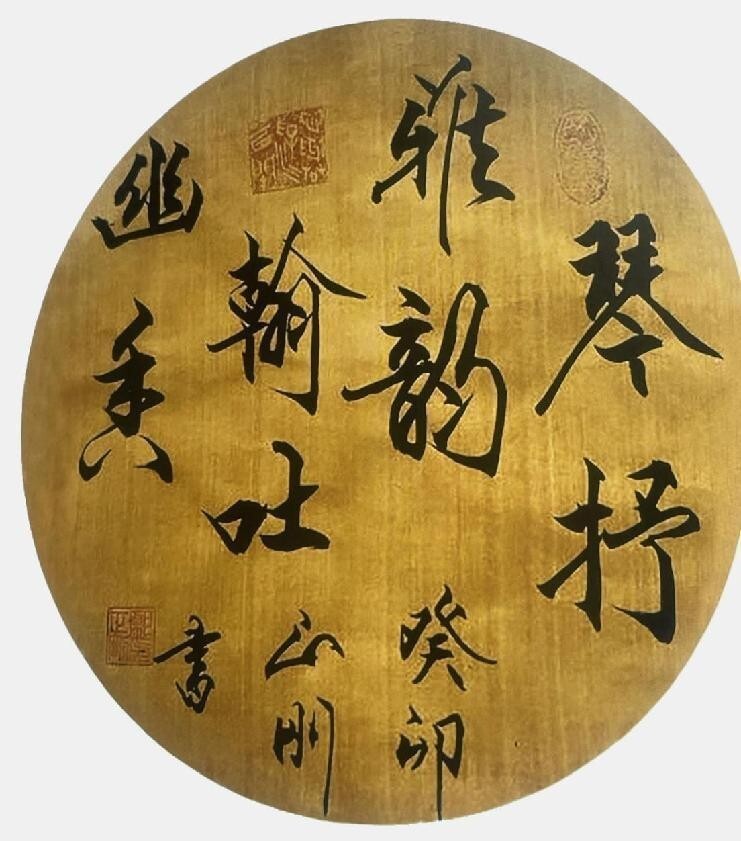 琴抒
雅韵
翰吐
幽香
癸卯
山明
书